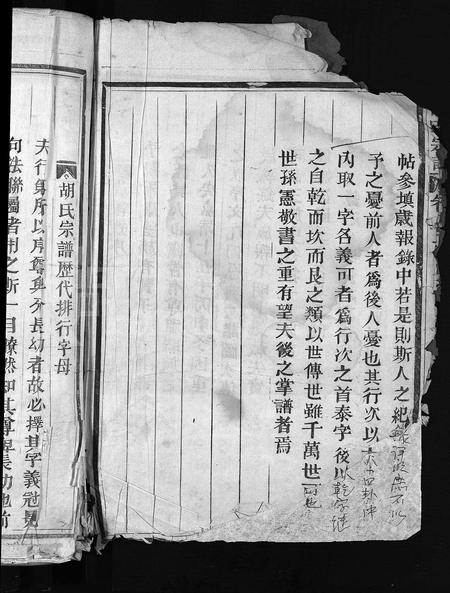 帖參填歲報錄中若是則斯人之紀錄
予之憂前人者爲後人憂也其行次以六十四卦中
內取一字名義可者爲行次之首泰字後以乾字繼
之自乾而坎而艮之類以世傳世雖千萬世可也
世孫憲敬書之重有望夫後之掌譜者焉
胡氏宗譜歷代排行字母
夫行第所以序尊卑分長幼者故必擇其字義冠
向法聯屬者用之斯一目瞭然知其尊卑長幼也前